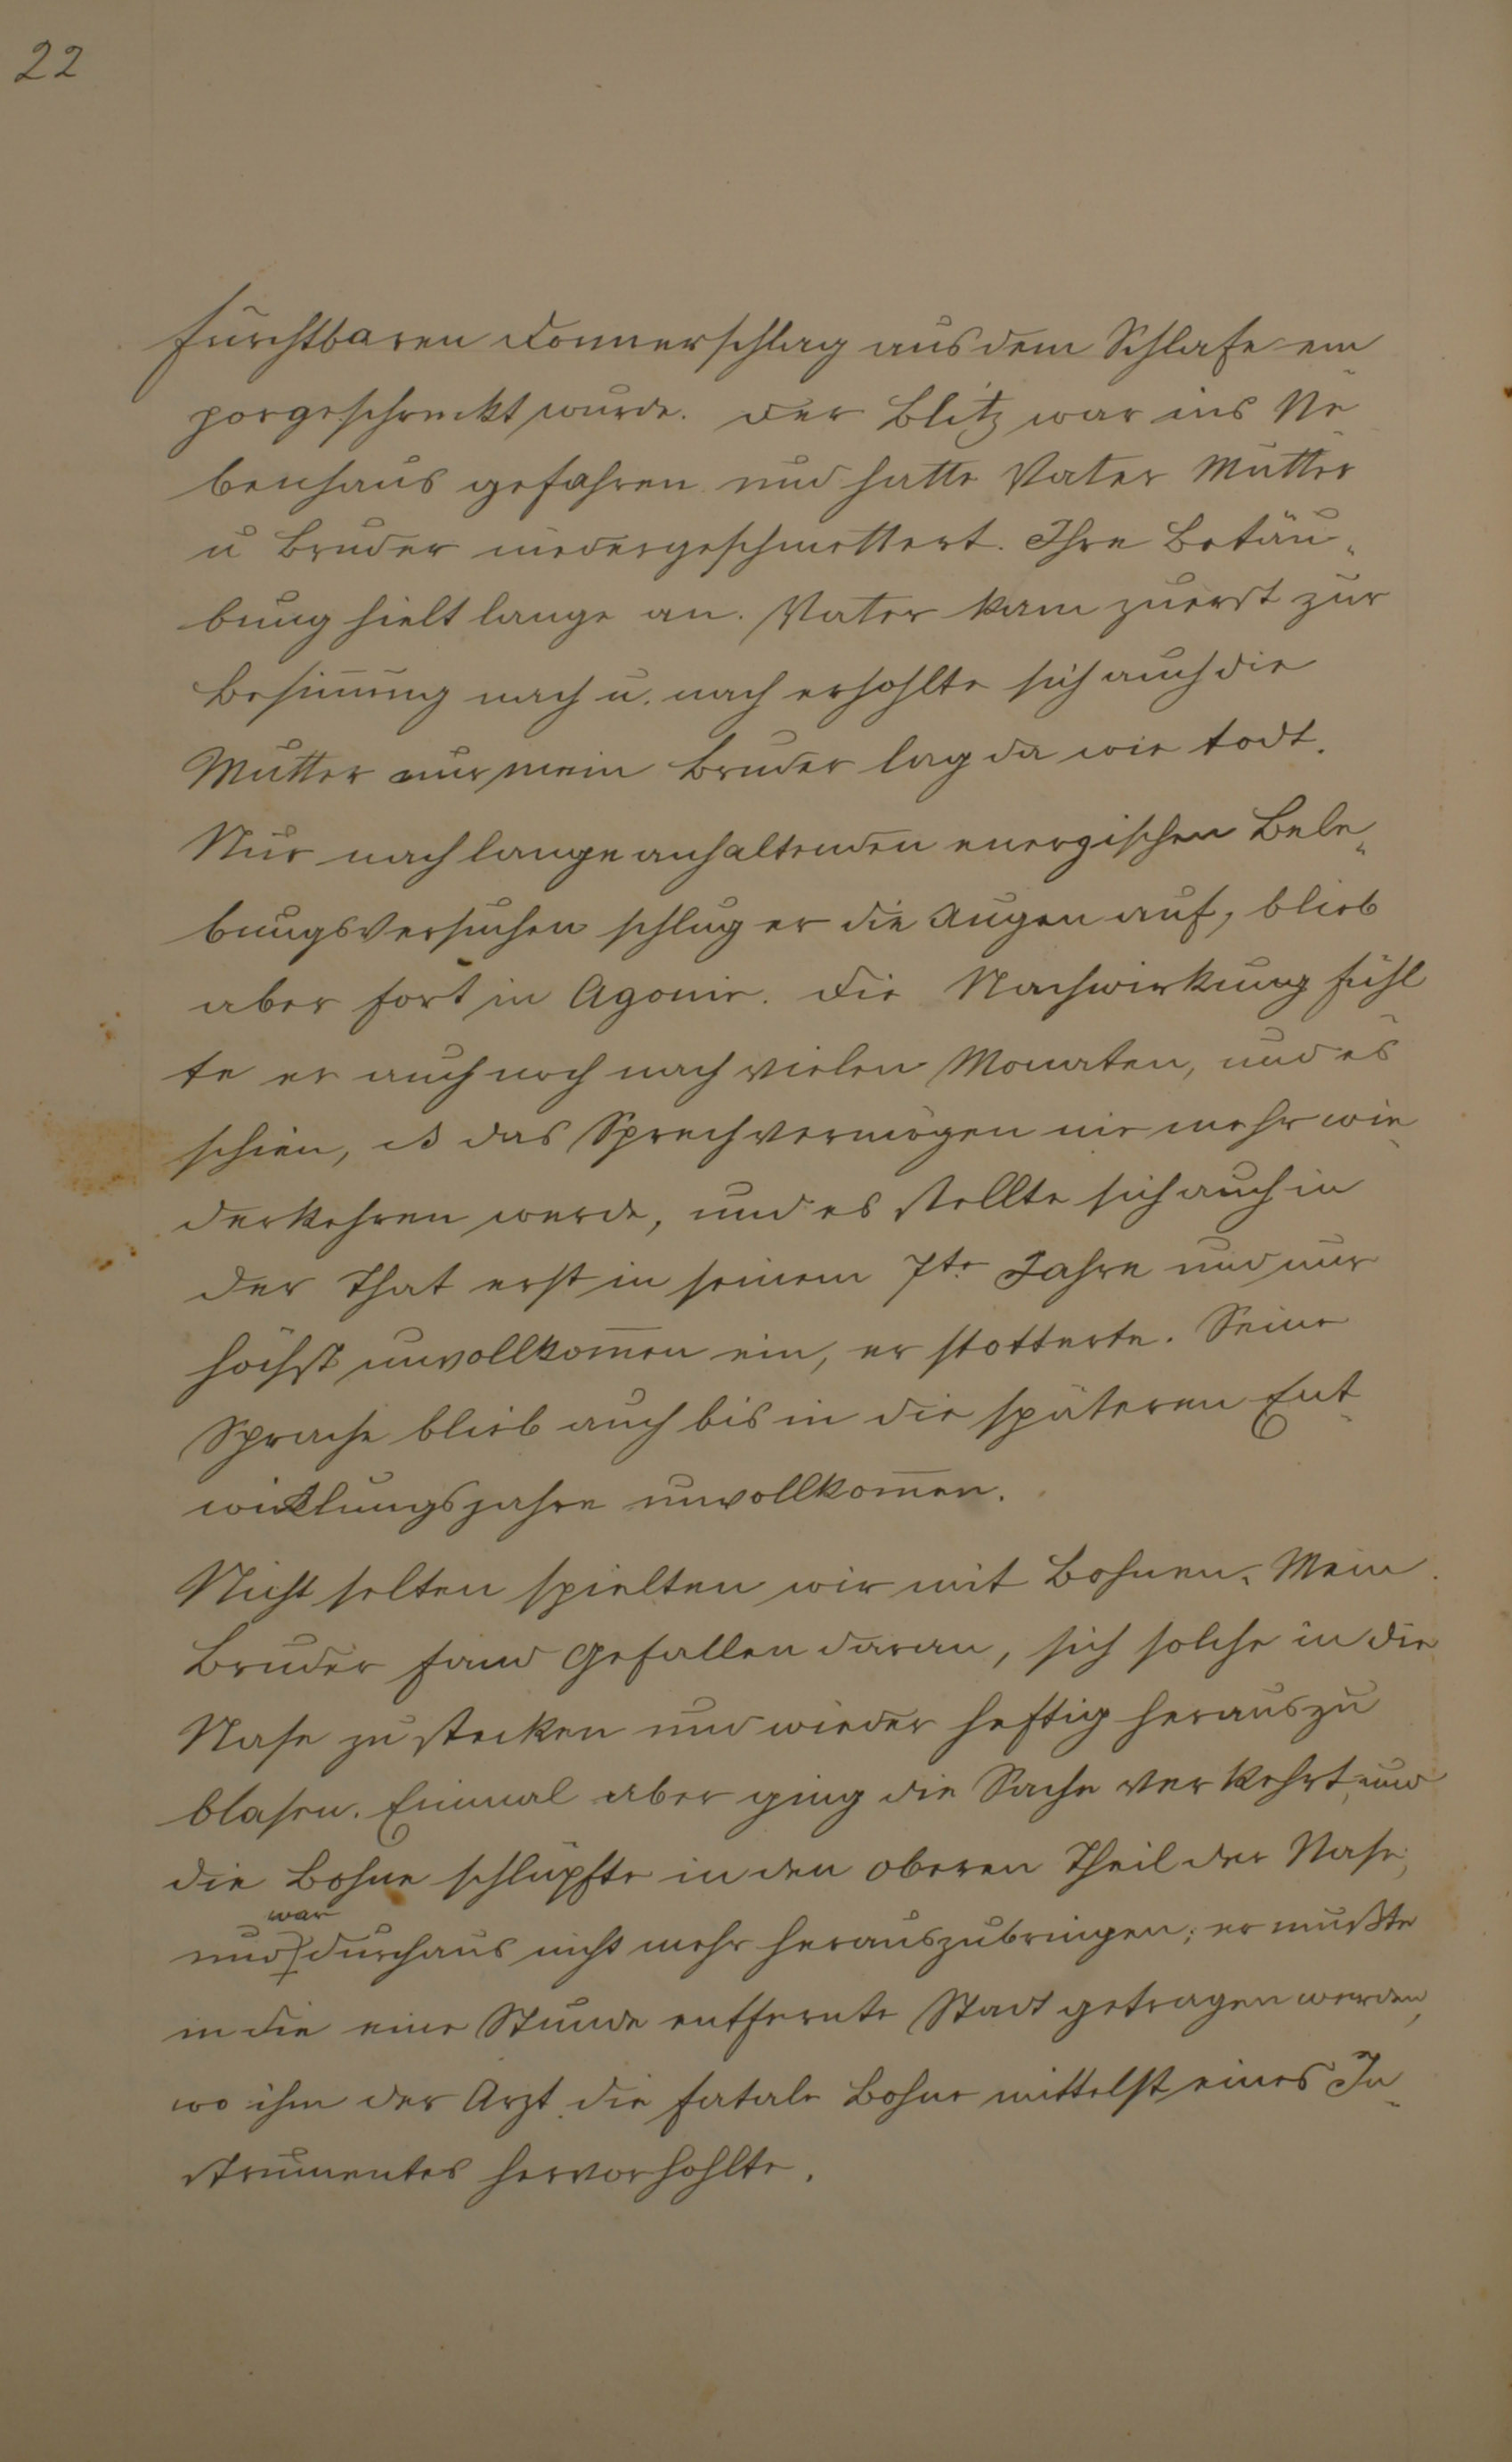 22
furchtbaren Donnerschlag aus dem Schlafe em
porgeschreckt wurde. Der Blitz war ins Ne
benhaus gefahren und hatte Vater Mutter
u Bruder niedergeschmettert. Ihre Betäu-
bung hielt lange an. Vater kam zuerst zur
Besin̄ung nach u. nach erhohlte sich auch die
Mutter nur mein Bruder lag da wie todt.
Nur nach lange anhaltenden energischen Bele-
bungsversuchen schlug er die Augen auf, blieb
aber fort in Agonie. Die Nachwirkung fühl
te er auch noch nach vielen Monaten, und es
schien, als das Sprechvermögen nie mehr wie-
derkehren werde, und es stellte sich auch in
der That erst in seinem 7te Jahre und nur
höchst unvollkom̄en ein, er stotterte. Seine
Sprache blieb auch bis in die späteren Ent-
wicklungsjahre unvollkom̄en.
Nicht selten spielten wir mit Bohnen. Mein
Bruder fand Gefallen daran, sich solche in die
Nase zu stecken und wieder heftig herauszu
blasen. Einmal aber ging die Sache verkehrt, und
die Bohne schlüpfte in den oberen Theil der Nase,
war
und durchaus nicht mehr herauszubringen; er mußte
in die eine Stunde entfernte Stadt getragen werden,
wo ihm der Arzt die fatale Bohne mittelst eines In-
strumentes hervorhohlte.